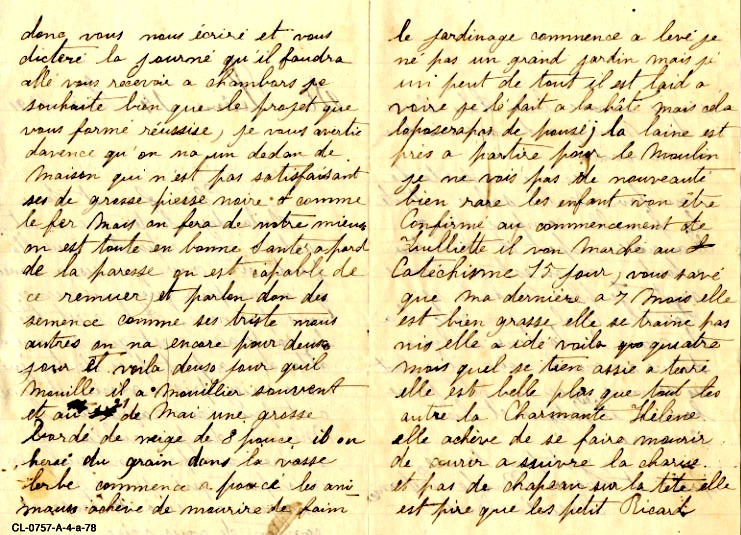 donc vous nous écriré et vous
dicteré la journé qu'il foudra
allé vous recevoir a chambors je
souhaite bien que le projet que
vous formé réussise, je vous avertie
davence qu'on na un dedan de
maison qui n'est pas satisfaisant
ses de grosse piesse noire comme
le fer mais on fera de notre mieux
on est toute en bonne santé, apard
de la paresse on est capable de
ce remuer, et parlon don des
semence comme ses triste nous
autres on na encore pour deuse
jour et voila deuse jour quil
mouille il a mouillier souvent
et au 21 de Mai une grosse
bordé de neige de 8 pouce il on
hersé du grain dans la vasse
lerbe commence a pouce les ani
maux achève de mourire de faim
le jardinage commence a levé je
né pas un grand jardin mais jé
un peut de tout il est laid a
voire je lé fait a la hâte mais cela
loposerapas de pousé; la laine est
près a partire pour le moulin
je ne vois pas de nouveauté
bien rare les enfant von être
Confirmé au commencement de
Juilliette il von marché au
Catéchisme 15 jour, vous savé
que ma dernière a 7 mois elle
est bien grasse elle se traine pas
mis elle a idé voila quatre
mois quel se tien assie a terre
elle est belle plus que tout les
autre la Charmante Hélène
elle achève de se faire mourir
de courir a suivre la charue
et pas de chapeau sur la tête elle
est pire que les petit Ricard
CL-0757-A-4-a-78